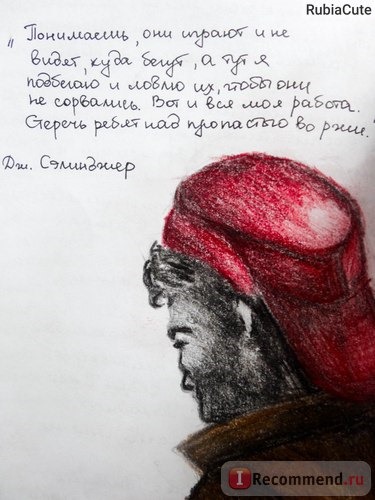 RubiaCute
„Понимаешь, они играют и не
видят, куда бегут, а тут я
подбегаю и ловлю их, чтобы они
не сорвались. Вот и вся моя работа.
Стеречь ребят над пропастью во ржи."
Дж. Сэлинджер
I Recommend.ru